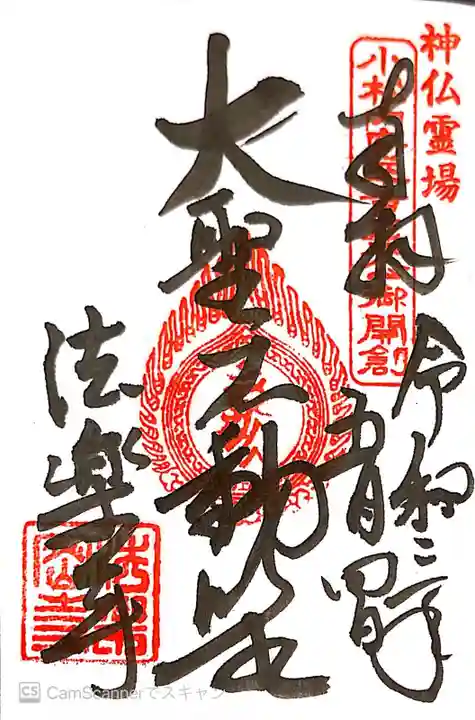 神仏霊場
奉拝
令和三年
五月四日
大聖不動尊
法楽寺
CS CamScannerでスキャン